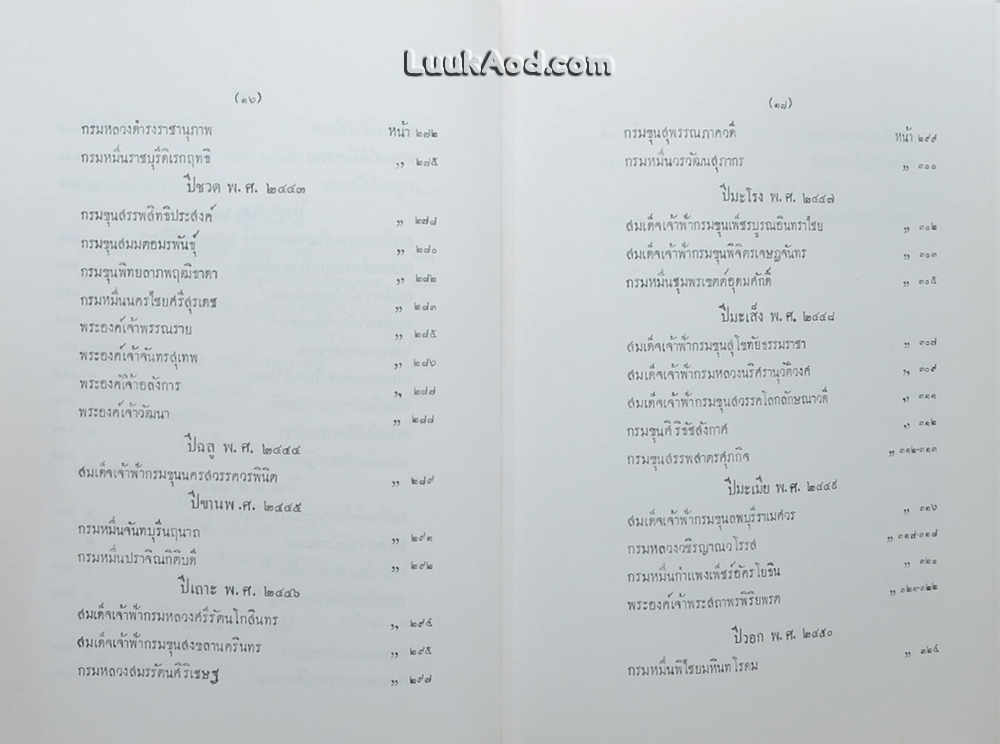 LuukAod.com
(๑๖)
กรมหลวงดำรงราชานุภาพ หน้า ๒๗๒
กรมหมื่นราชบุรีดิเรกฤทธิ ,, ๒๗๕
ปีชวด พ.ศ. ๒๔๔๓
กรมขุนสรรพสิทธิประสงค์ ,, ๒๗๘
กรมขุนสมมตอมรพันธุ์ ,, ๒๘๐
กรมขุนพิทยลาภพฤฒิธาดา ,, ๒๘๒
กรมหมื่นนครไชยศรีสุรเดช ,, ๒๘๓
พระองค์เจ้าพรรณราย ,, ๒๘๕
พระองค์เจ้าจันทรสุเทพ ,, ๒๘๖
พระองค์เจ้าอลังการ ,, ๒๘๗
พระองค์เจ้าวัฒนา ,, ๒๘๘
ปีฉลู พ.ศ. ๒๔๔๔
สมเด็จเจ้าฟ้ากรมขุนนครสวรรควรพินิต ,, ๒๘๙
ปีขานพ.ศ. ๒๔๔๕
กรมหมื่นจันทบุรีนฤนาถ ,, ๒๙๑
กรมหมื่นปราจิณกิติบดี ,, ๒๙๒
ปีเถาะ พ.ศ. ๒๔๔๖
สมเด็จเจ้าฟ้ากรมหลวงศรีรัตนโกสินทร ,, ๒๙๔
สมเด็จเจ้าฟ้ากรมขุนสงขลานครินทร ,, ๒๙๕
กรมหลวงสมรรัตนศิริเชษฐ ,, ๒๙๗
(๑๗)
กรมขุนสุพรรณภาควดี หน้า ๒๙๙
กรมหมื่นวรวัฒนสุภากร ,, ๓๐๐
ปีมะโรง พ.ศ. ๒๔๔๗
สมเด็จเจ้าฟ้ากรมขุนเพ็ชรบูรณอินทราไชย ,, ๓๐๒
สมเด็จเจ้าฟ้ากรมขุนพิจิตรเจษฎจันทร ,, ๓๐๓
กรมหมื่นชุมพรเขตต์อุดมศักดิ์ ,, ๓๐๕
ปีมะเส็ง พ.ศ. ๒๔๔๘
สมเด็จเจ้าฟ้ากรมขุนสุโขทัยธรรมราชา ,, ๓๐๗
สมเด็จเจ้าฟ้ากรมหลวงนริศรานุวัดิวงศ์ ,, ๓๐๙
สมเด็จเจ้าฟ้ากรมขุนสวรรคโลกลักษณาวดี ,, ๓๑๑
กรมขุนศิริธัชสังกาศ ,, ๓๑๒
กรมขุนสรรพสาตรศุภกิจ ,, ๓๑๒-๓๑๓
ปีมะเมีย พ.ศ. ๒๔๔๙
สมเด็จเจ้าฟ้ากรมขุนลพบุรีราเมศวร ,, ๓๑๖
กรมหลวงวชิรญาณวโรรส ,, ๓๑๗-๓๑๘
กรมหมื่นกำแพงเพ็ชร์อัครโยธิน ,, ๓๒๐
พระองค์เจ้าพระสถาพรพิริยพรต ,, ๓๒๑-๓๒๒
ปีวอก พ.ศ. ๒๔๕๐
กรมหมื่นพิไชยมหินทโรดม ,, ๓๒๔